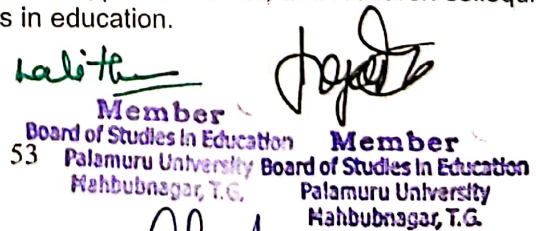 s in education.
Lalitha
Member
Board of Studies in Education
53 Palamuru University
Mahbubnagar, T.G.
Member
Board of Studies in Education
Palamuru University
Mahbubnagar, T.G.